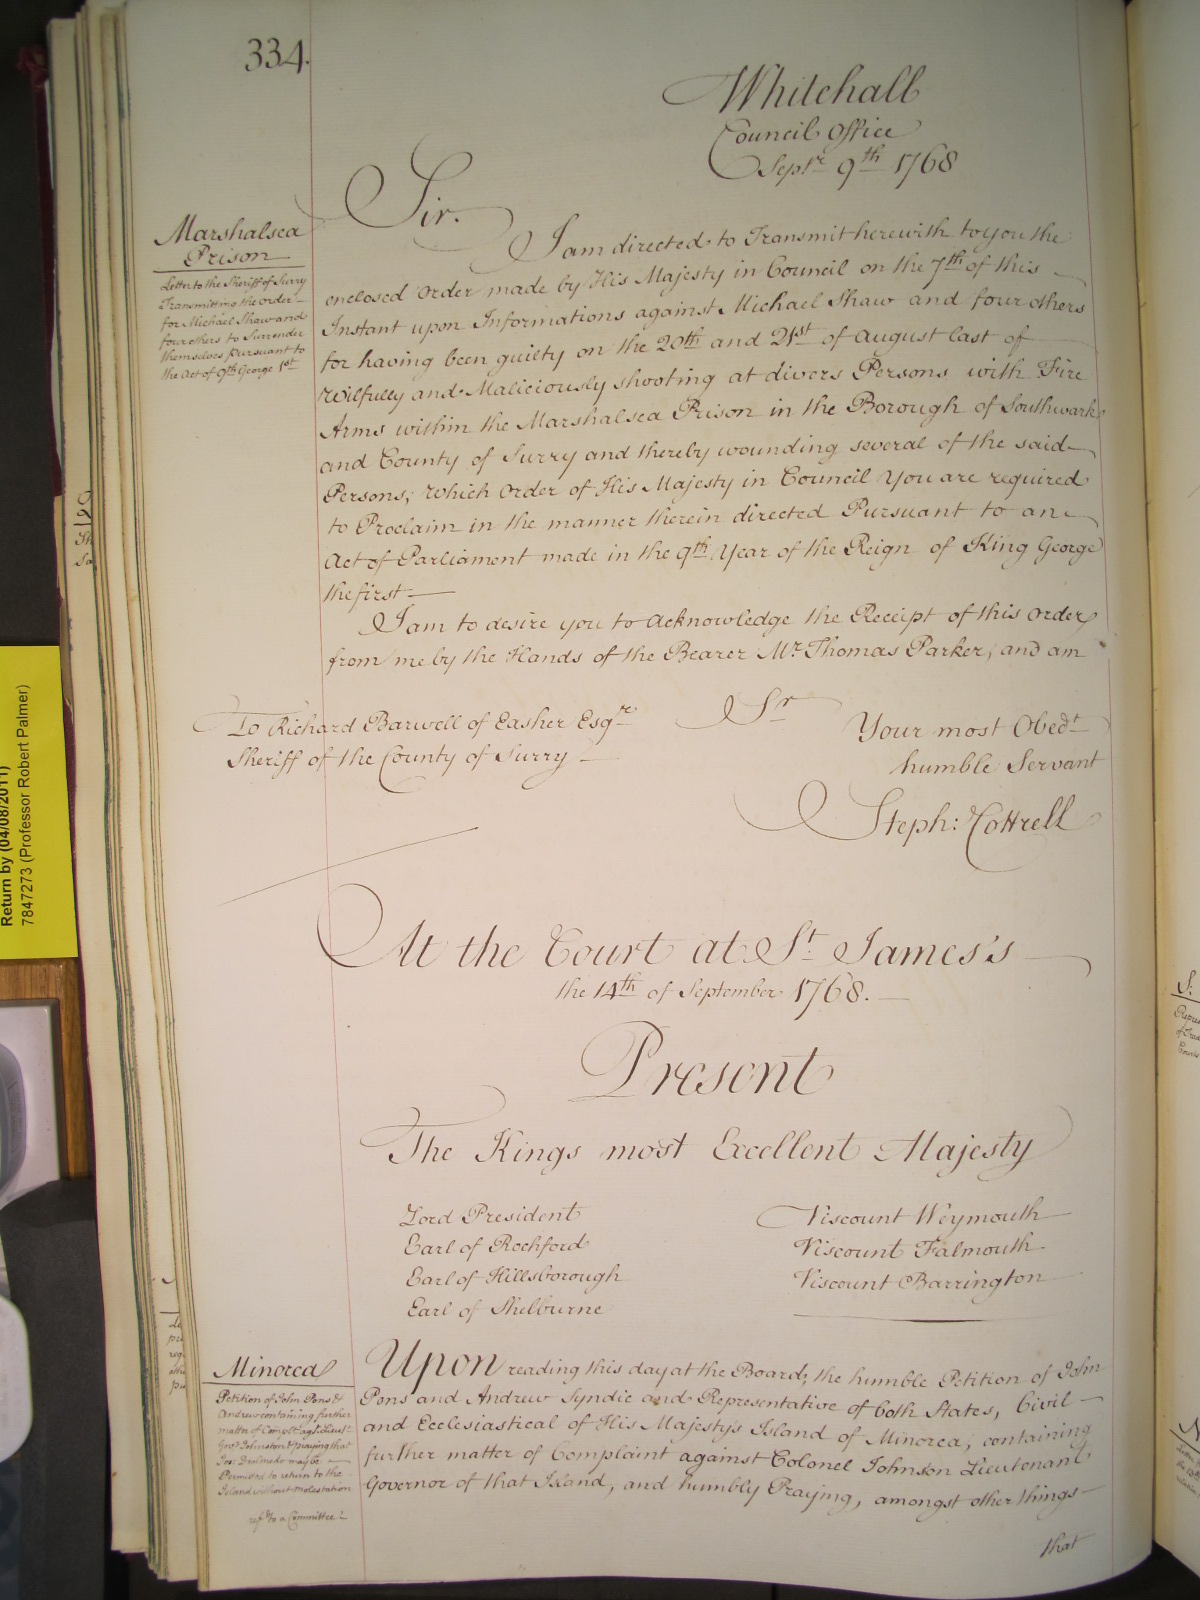 334.
Whitehall
Council Office
Septr. 9th 1768
Sir.
Marshalsea
Prison
Letter to the Sheriff of Surry
Transmitting the order
for Michael Shaw and
four others to Surrender
themselves pursuant to
the Act of 9th George 1st
I am directed to Transmit herewith to you the
enclosed Order made by His Majesty in Council on the 7th of this
Instant upon Informations against Michael Shaw and four others
for having been guilty on the 20th and 21st of August last of
Wilfully and Maliciously shooting at divers Persons with Fire
Arms within the Marshalsea Prison in the Borough of Southwark
and County of Surry and thereby wounding several of the said
Persons; Which Order of His Majesty in Council You are required
to Proclaim in the manner therein directed Pursuant to an
Act of Parliament made in the 9th Year of the Reign of King George
the first
I am to desire you to Acknowledge the Receipt of this Order
from me by the Hands of the Bearer Mr. Thomas Parker, and am
Sr
To Richard Barwell of Easher Esqre
Sheriff of the County of Surry
Your most Obedt
humble Servant
Steph: Cottrell
At the Court at St. James's
the 14th of September 1768.
Present
The Kings most Excellent Majesty
Lord President
Earl of Rochford
Earl of Hillsborough
Earl of Shelburne
Viscount Weymouth
Viscount Falmouth
Viscount Barrington
Minorca
Petition of John Pons &
Andrew containing further
matter of Complt. agt. Lieut.
Govr. Johnston & praying that
may be
Permitted to return to the
Island without molestation
refd. to a Committee
Upon reading this day at the Board, the humble Petition of John
Pons and Andrew Syndic and Representative of both States, Civil
and Ecclesiastical of His Majesty's Island of Minorca, containing
further matter of Complaint against Colonel Johnson Lieutenant
Governor of that Island, and humbly Praying, amongst other things
that
Return by (04/08/2011)
7847273 (Professor Robert Palmer)